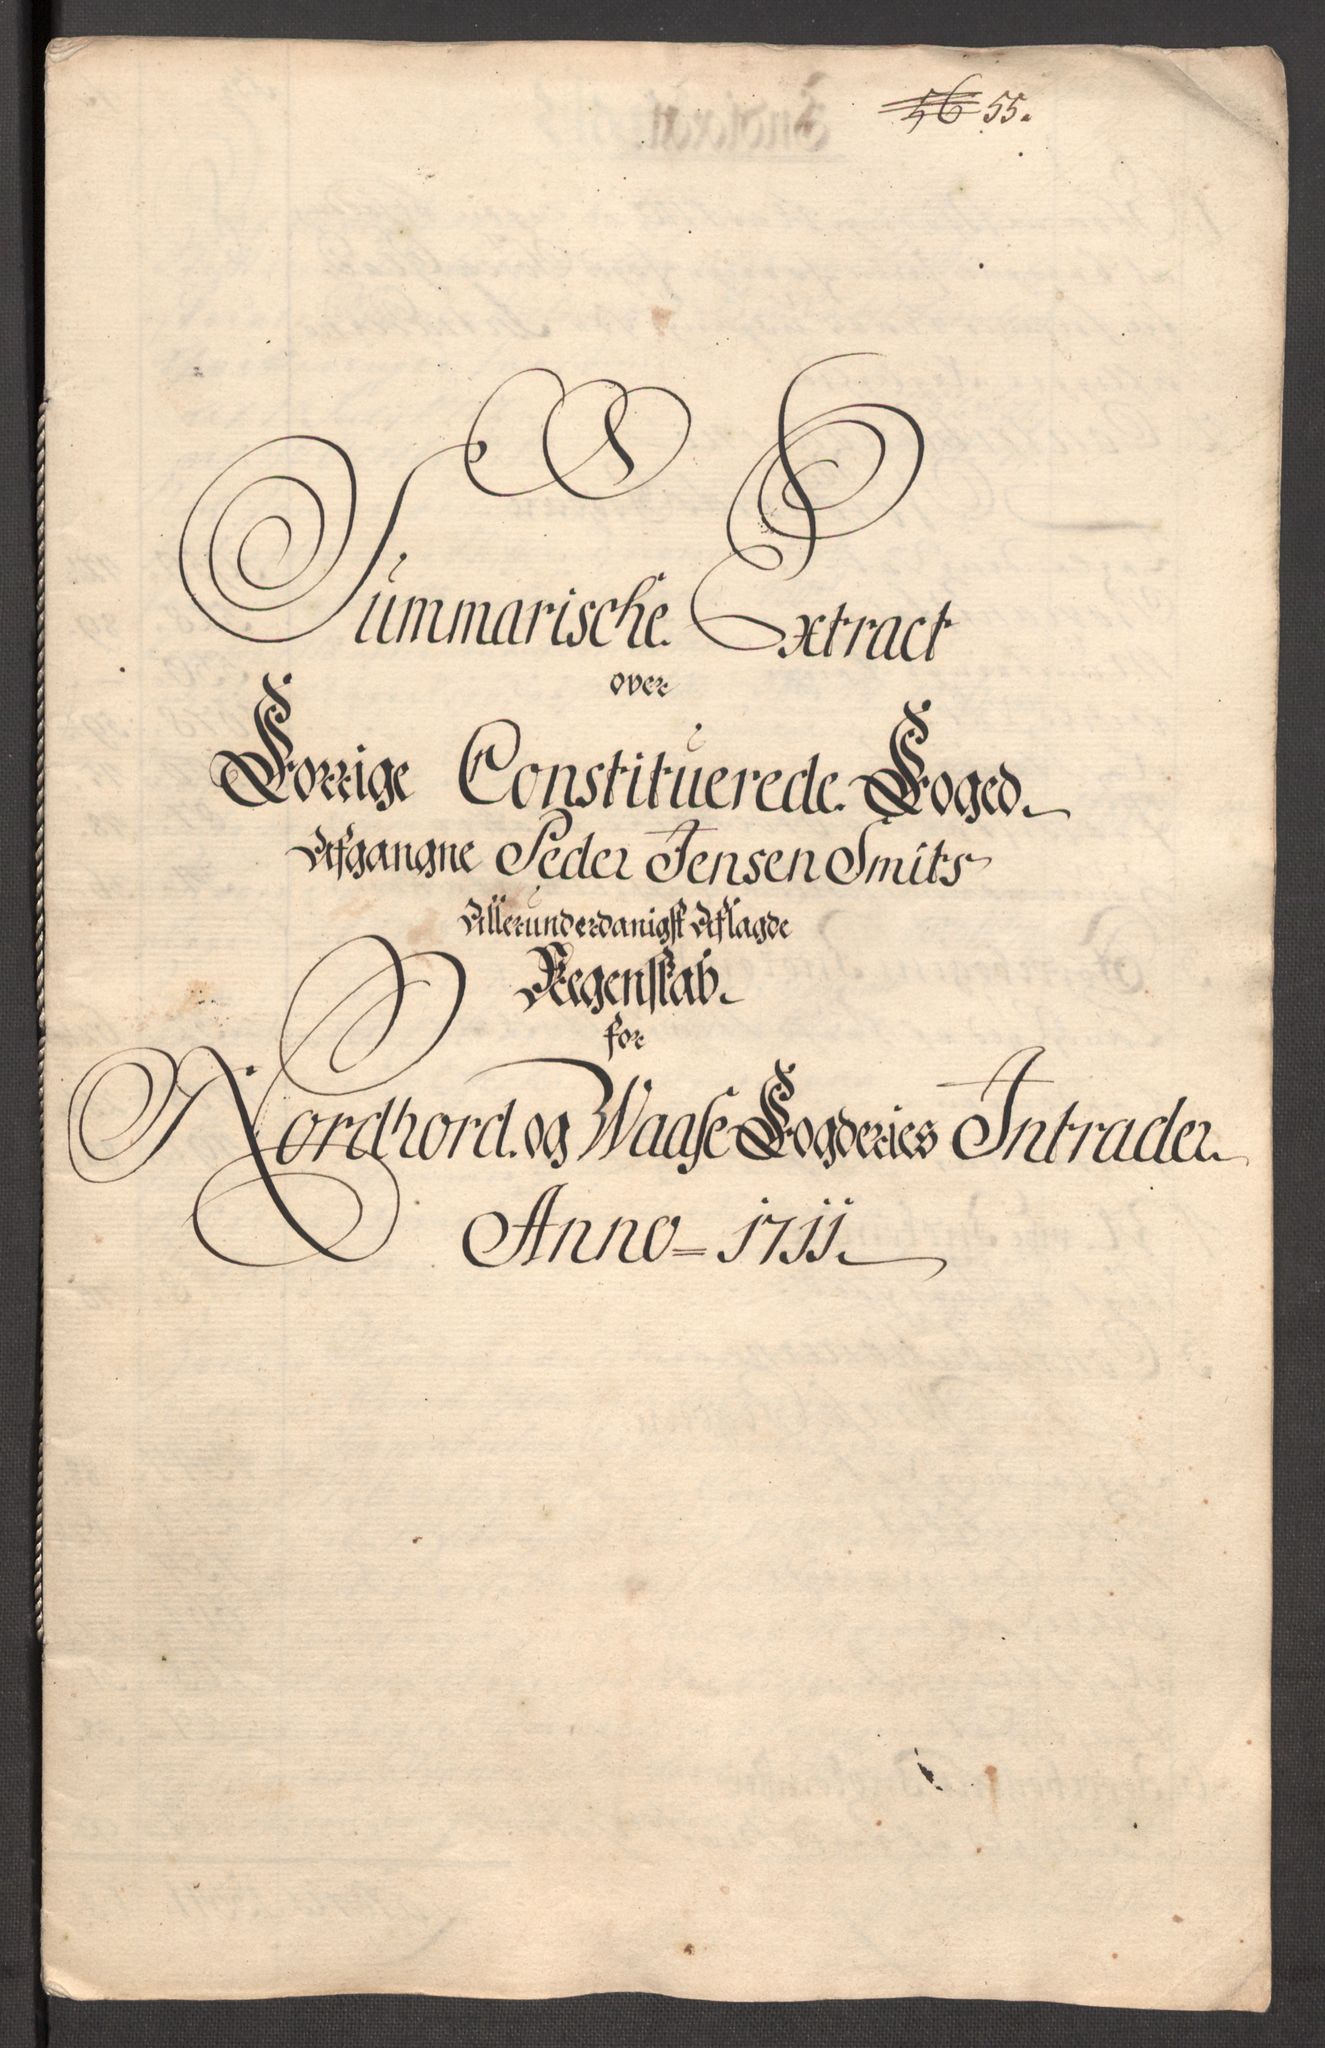 56 55.
Summarische Extract
over
Forrige Constituerede Foged
Afgangne Peder Jensen Smits
Allerunderdanigst Aflagde
Regenskab
for
Nordhord. og Waasse Fogderies Intrader
Anno 1711